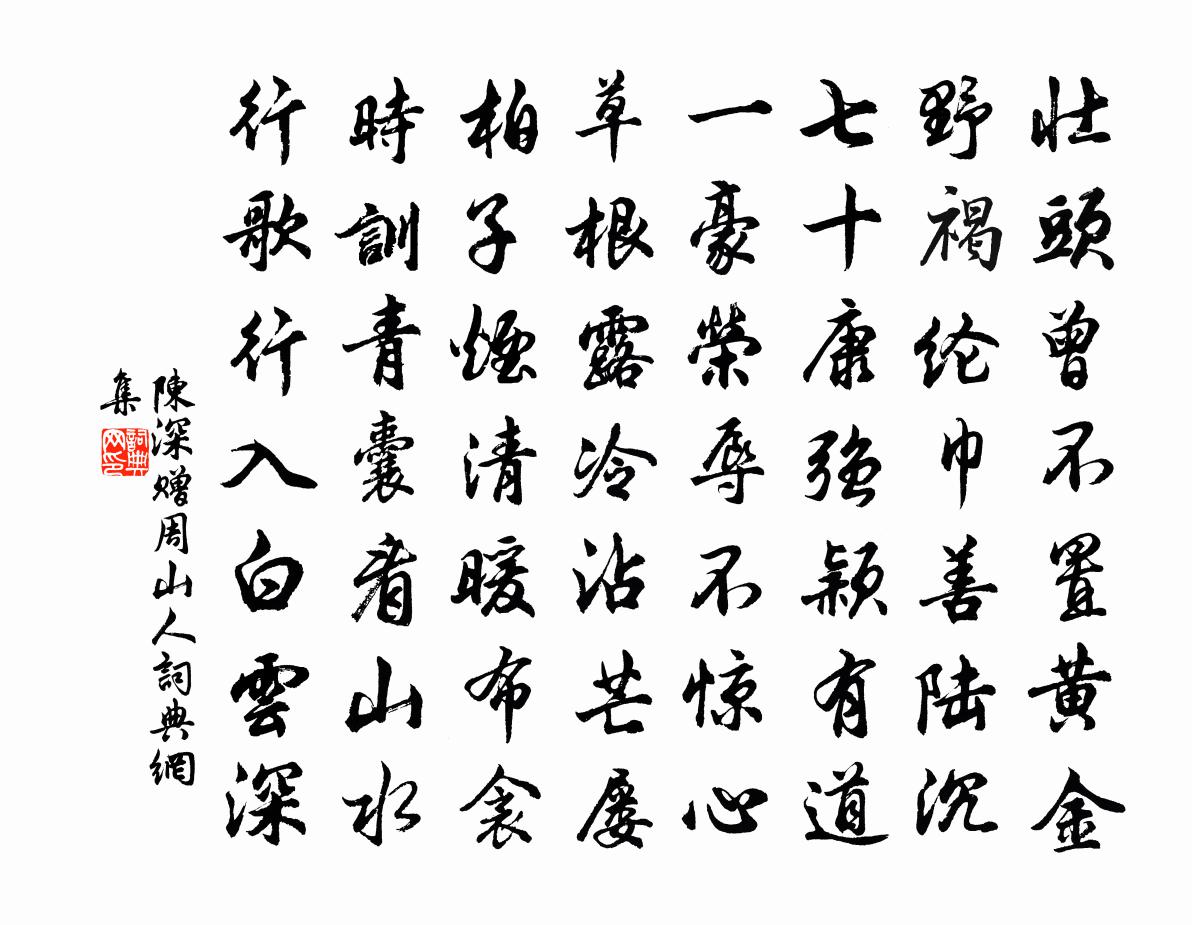 壮頭曾不置黄金
野褐纶巾善陆沉
七十康强颖有道
一豪榮辱不惊心
草根露冷沾芒屦
柏子煙清暖布衾
時訓青囊看山水
行歌行入白雲深
陳深赠周山人詞典網
集
詞典网印